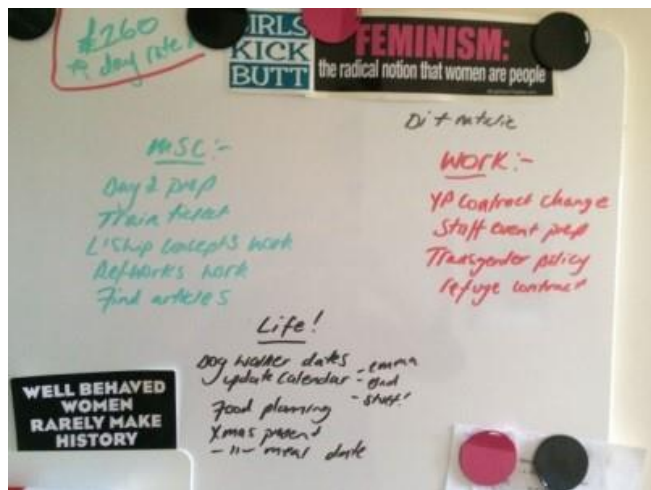 £260
day rate
GIRLS
KICK
BUTT
FEMINISM:
the radical notion that women are people
Di +
MSC:-
Day 2 prep
Train ticket
L'Ship concepts work
Networks work
Find articles
WORK:-
YP Contract change
Staff event prep
Transgender policy
refuge contract
Life!
Dog walker dates - emma
update calendar -
- stuff!
Food planning
Xmas present
- 11 - meal date
WELL BEHAVED
WOMEN
RARELY MAKE
HISTORY